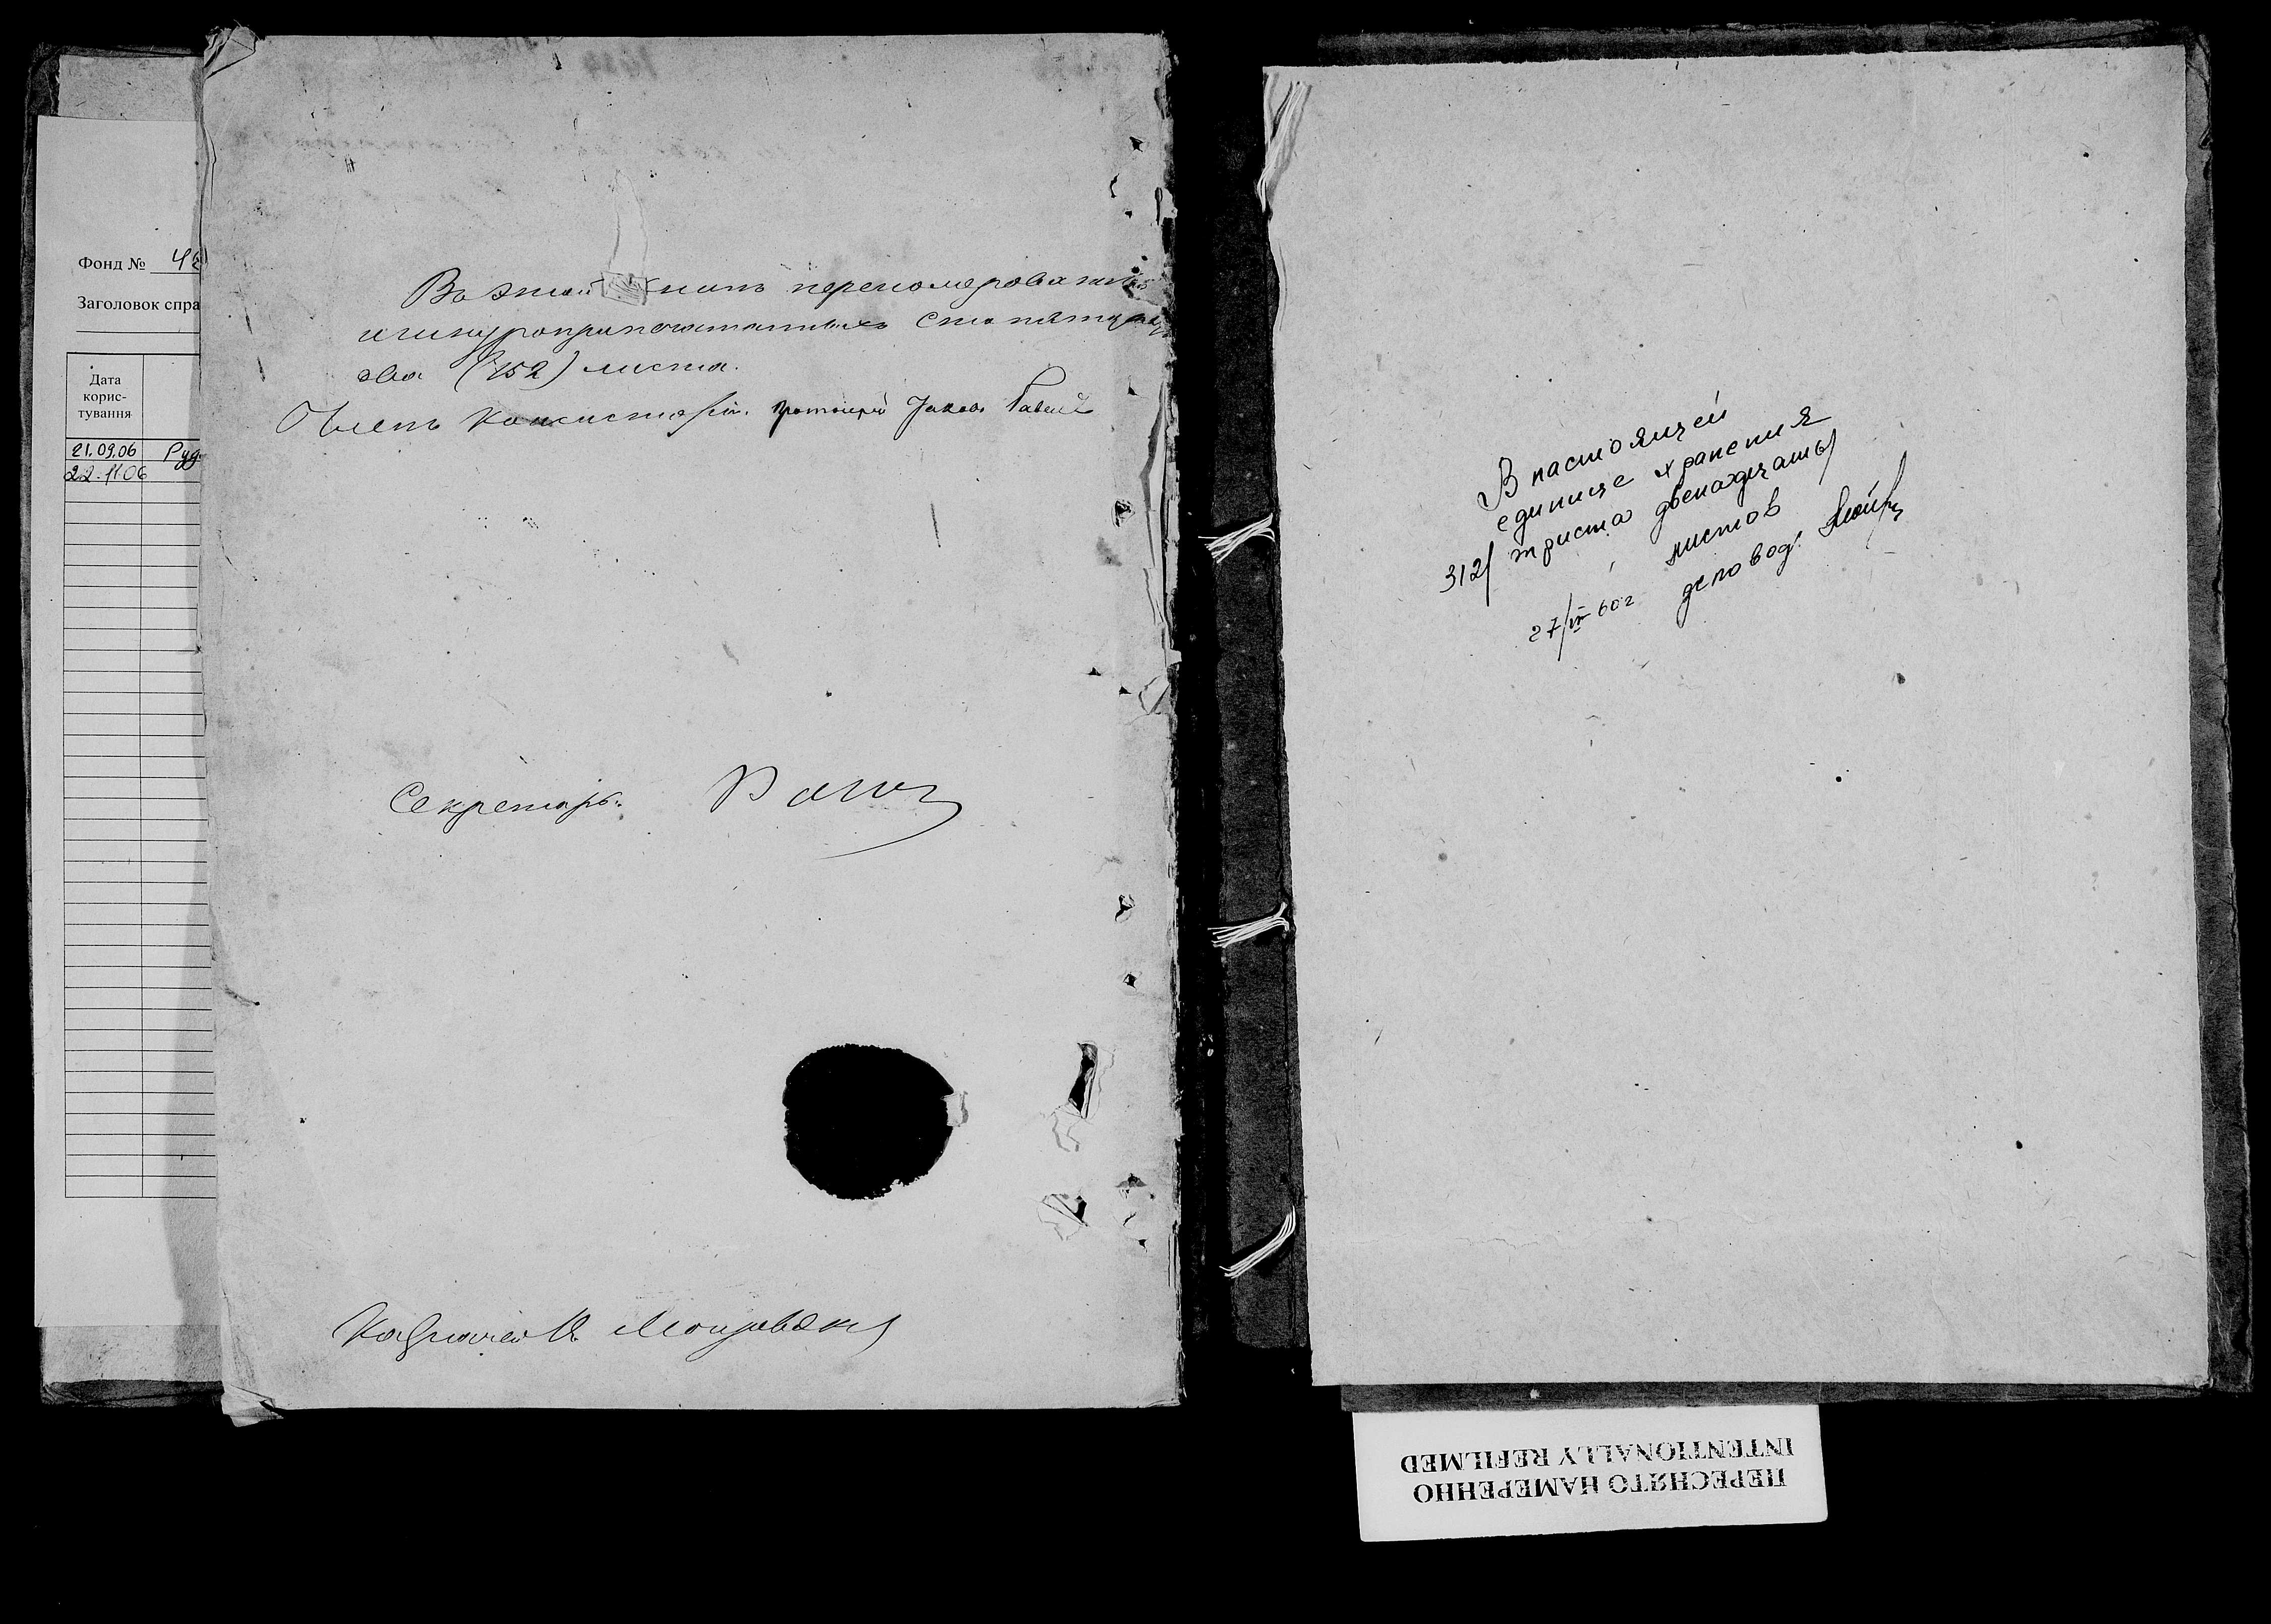 Фонд №
Заголовок спра
Дата
корис-
тування
21.09.06
22.11.06
Въ этой книгѣ перенумерованныхъ
и шнуроприпечатанныхъ сто пятьдесятъ
два (152) листа.
Членъ Консисторіи, Протоіерей Іаковъ
Секретарь
Казначей
В настоящей
единице хранения
312/ триста двенадцать/
листов
27/IV 60 г деловод.
ПЕРЕСНЯТО НАМЕРЕННО
INTENTIONALLY REFILMED